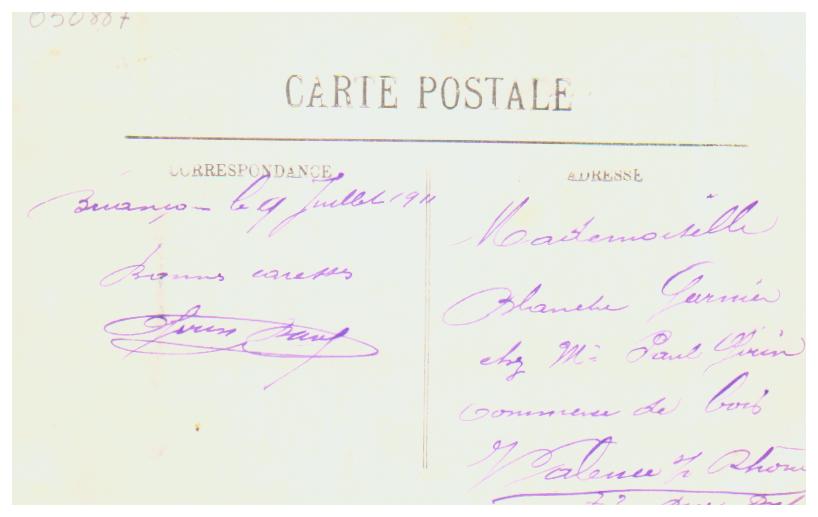 050887
CARTE POSTALE
CORRESPONDANCE
Briançon le 9 Juillet 1911
Bonnes caresses
ADRESSE
Mademoiselle
Blanche Garnier
chez Mr Paul
Commerce de bois
Valence s/ Rhône